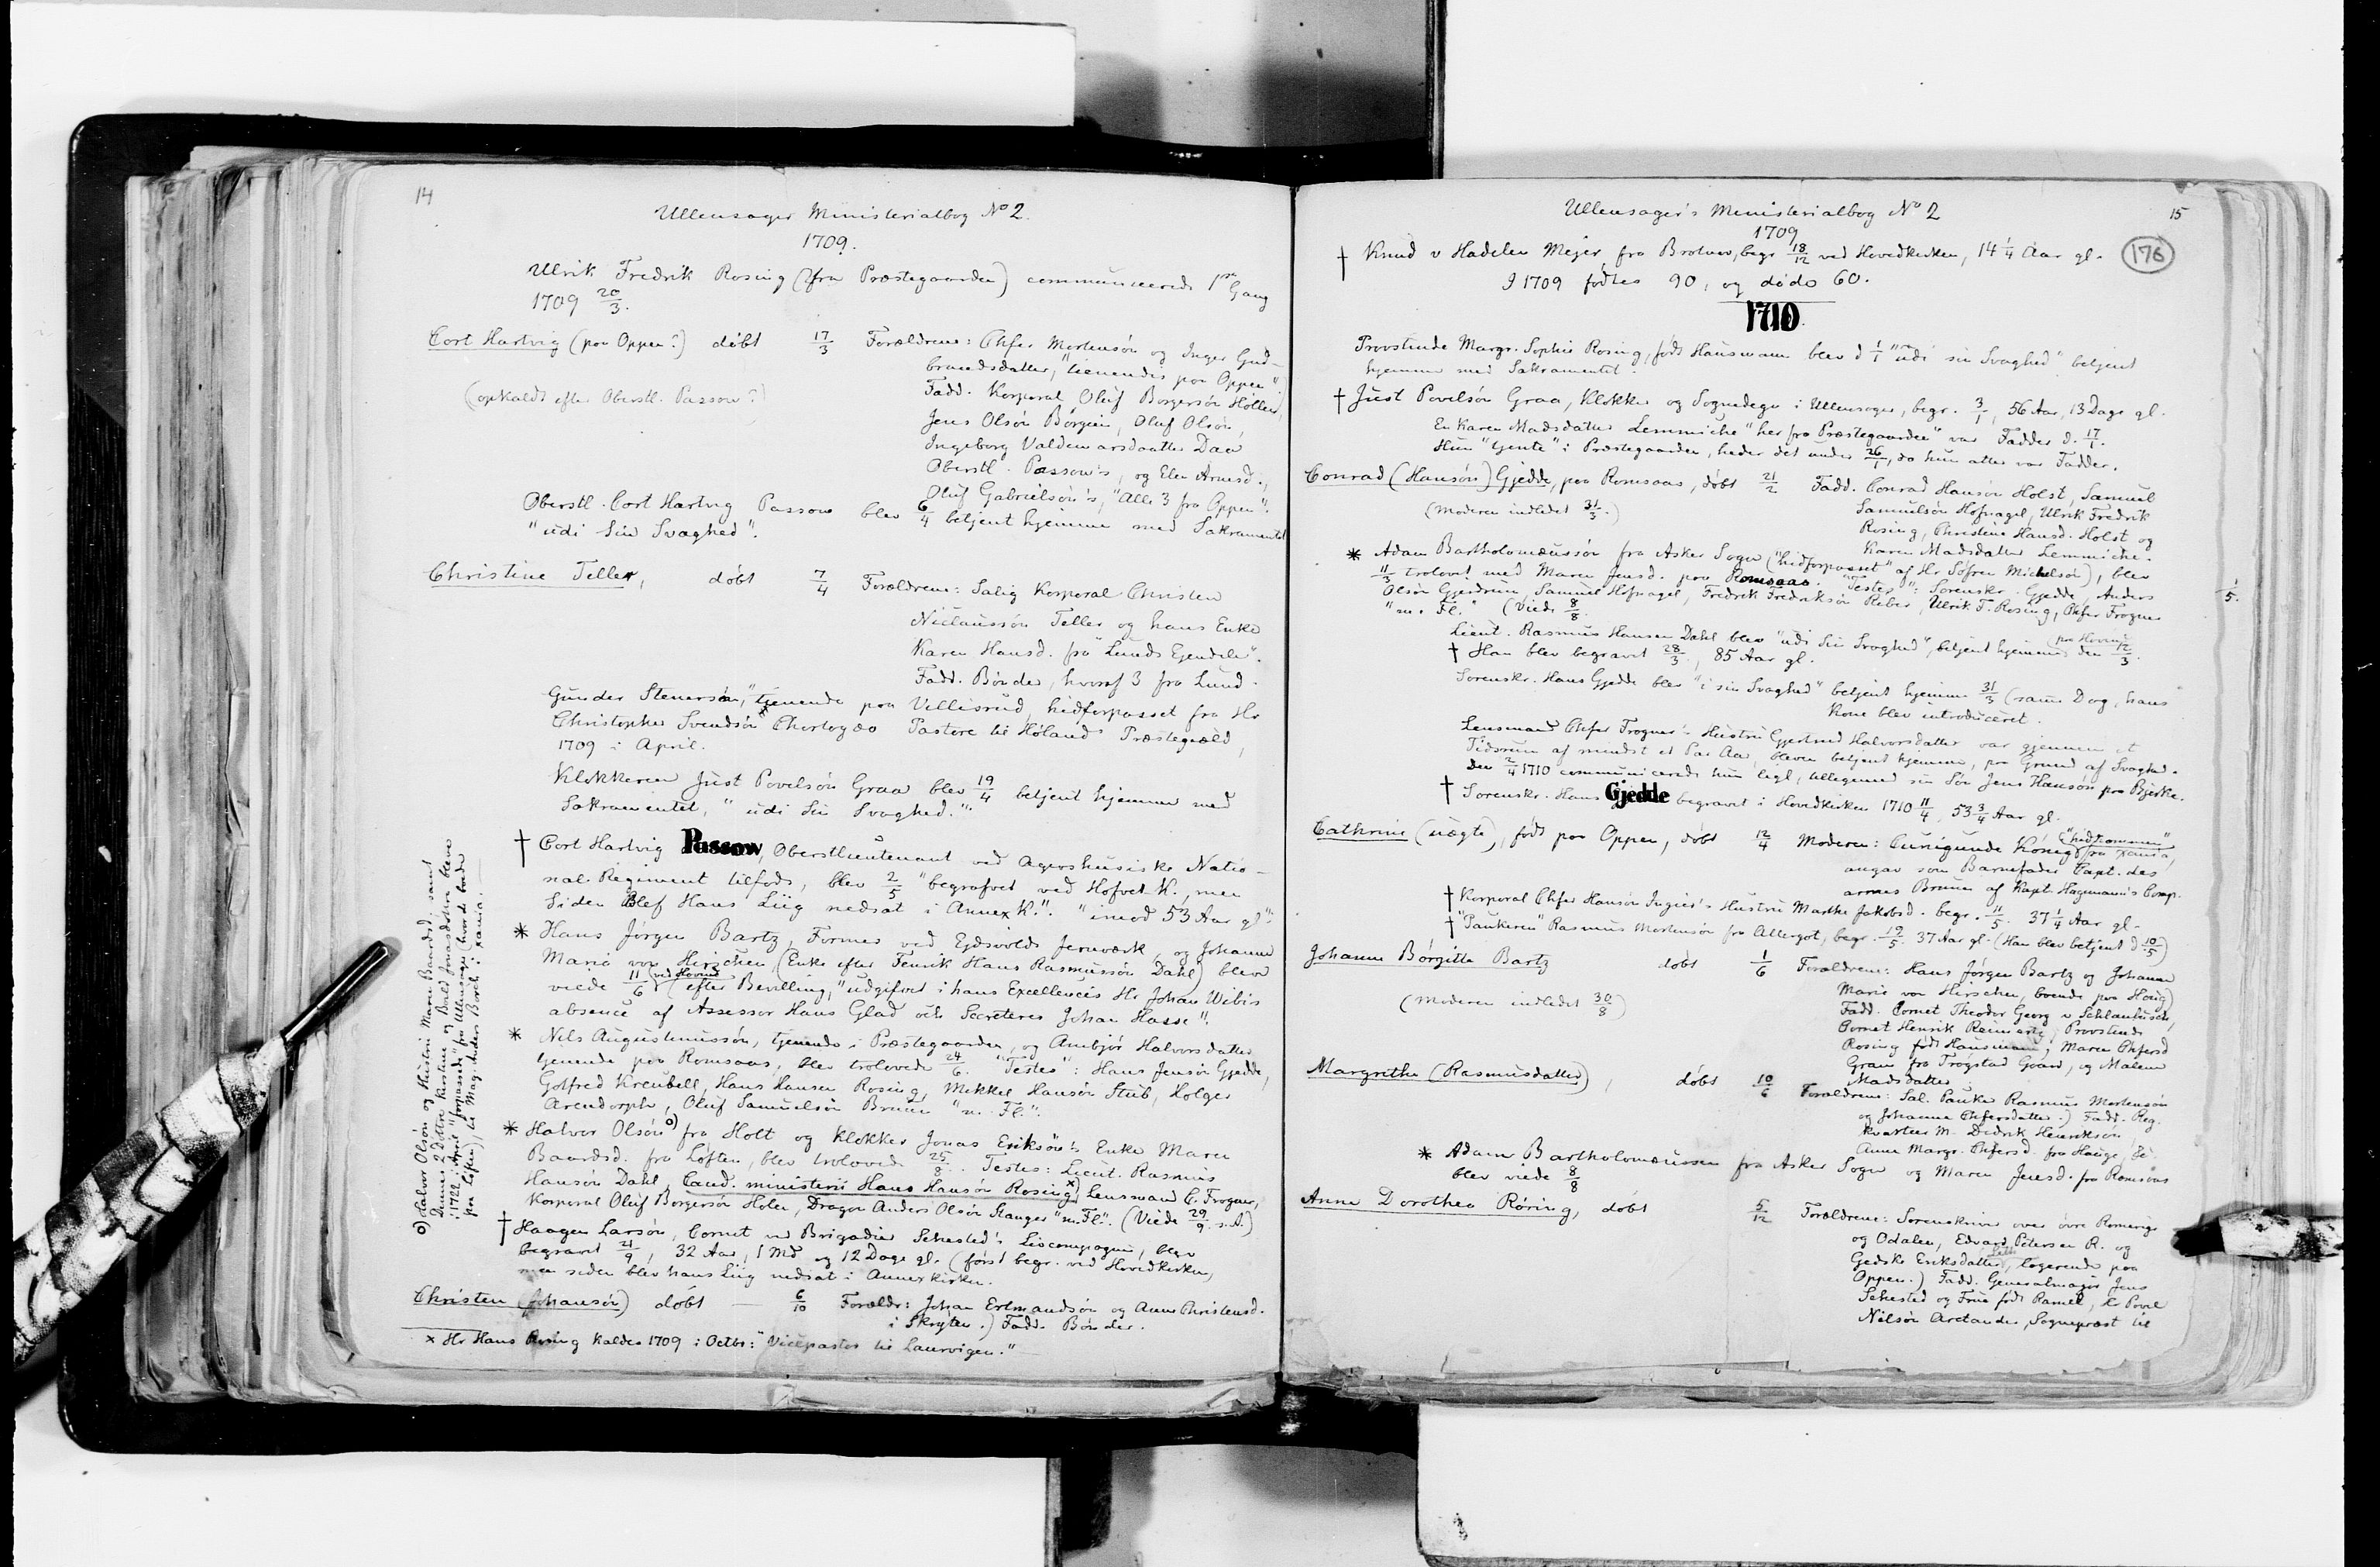 14
Ullensager Ministerialbog No 2.
1709.
Ulrik Fredrik Rosing (fra Præstegaarden) communicerede 1ste Gang
1709 20/3.
Cort Hartvig (paa Oppen?) døbt 17/3 Forældrene: Chfer Mortensøn og Inger Gud-
brandsdatter, "tienendis paa Oppen"
(opkaldt efter Oberstl. Passow?) Fadd. Korporal Oluf Borgersøn Hollen,
Jens Olsøn Børgien, Oluf Olsøn,
Ingeborg Valdemarsdaatter Daa
Oberstl. Passow's, og Elen Arnesd.,
Oluf Gabrielsøn's, "Alle 3 fra Oppen".
Oberstl. Cort Hartvig Passow blev 6/4 betjent hjemme med Sakramentet
"udi Sin Svaghed".
Christine Teller, døbt 7/4 Forældrene: Salig Korporal Christen
Niclaussøn Teller og hans Enke
Karen Hansd. fra "Lunds Ejendele".
Fadd. Bønder, hvoraf 3 fra Lund.
Gunder Stenersøn, "tjenende paa Vellisrud, hidforpasset fra Hr
Christopher Svendsøn Pastore til Hølands Præstegæld,
1709 i April.
Klokkeren Just Povelsøn Graa blev 19/4 betjent hjemme med
Sakramentet, "udi Sin Svaghed."
† Cort Hartvig Passow, Oberstlieutenant ved Agershusiske Natio-
nal-Regiment tilfods, blev 2/5 "begrafvet ved Hofvet K., men
siden blef Hans Liig nedsat i Annex K.". "imod 53 Aar gl".
* Hans Jørgen Bartz, Former ved Ejdsvolds Jernværk, og Johanne
Maria von Hirschen (Enke efter Fenrik Hans Rasmussøn Dahl) blev
viede 11/6 (ved Hovind) (efter Bevilling, "udgifvet i hans Excellencis Hr Johan Wibis
absence af Assessor Hans Glad och Secreterer Johan Hasse".
* Nils Augustinussøn, tjenende i Præstegaarden, og Ambjør Halvorsdatter
tjenende paa Romsaas, blev trolovede 24/6. "Testes": Hans Jensøn Gjedde,
Gotfred Kreubell, Hans Hansen Rosing, Mikkel Hansøn Stub, Holger
Arendorph, Oluf Samuelsøn Bruun "m. Fl".
* Halvor Olsøn o) fra Holt og Klokker Jonas Eriksøn's Enke Maren
Baardsd. fra Løften, blev trolovede 25/8. Testes: Lieut. Rasmus
Hansøn Dahl, Cand. ministerii Hans Hansøn Rosing x), Lensmand C. Frogner,
Korporal Oluf Borgersøn Holen, Dragon Anders Olsøn Hauger "m. Fl.". (Viede 29/9 s. A.)
† Haagen Larsøn, Cornet ved Brigadier Sehested's Livcompagni, blev
begravet 21/9, 32 Aar, 1 Md og 12 Dage gl. (først begr. ved Hovedkirken,
men siden blev hans Liig nedsat i Annexkirken.
Christen (Johansøn) døbt — 6/10 Forældr: Johan Ertmandsøn og Anne Christensd.
i Skryten.) Fadd. Bønder.
x Hr Hans Rosing kaldes 1709 i Octbr: "Vicepastor til Laurvigen."
o) Halvor Olsøn og Hustru Maren Baardsd. samt
Dennes 2 Døtre Kirstine og Bold Jonasdøttre bleve
i 1722 i April "forpassede" fra Ullensager (hvor de boede
paa Løften), til Mag. Anders Borch i Xania.
15
176
Ullensager's Ministerialbog No 2
1709
† Knud v Hadelen Mejer, fra Brotnov, begr 18/12 ved Hovedkirken, 14 1/4 Aar gl.
I 1709 fødtes 90, og døde 60.
1710.
Provstinde Margr. Sophie Rosing, født Hausmann blev d 1/1 "udi sin Svaghed" betjent
hjemme med Sakramentet.
† Just Povelsøn Graa, Klokker og Sognedegn i Ullensager, begr. 3/1, 56 Aar, 13 Dage gl.
En Karen Madsdatter Lemmiche "her fra Præstegaarden" var Fadder d. 17/1.
Hun "tjente" i Præstegaarden, heder det under 26/1, da hun atter var Fadder.
Conrad (Hansøn) Gjedde, paa Romsaas, døbt 21/2 Fadd. Conrad Hansøn Holst, Samuel
(Moderen indledet 31/3.) Samuelsøn Hofnagel, Ulrik Fredrik
Rosing, Christine Hansd. Holst og
Karen Madsdatter Lemmiche.
* Adam Bartholomæussøn fra Asker Sogn ("hidforpasset" af Hr Søfren Michelsøn), blev
11/3 trolovet med Maren Jensd. paa Romsaas. "Testes": Sorenskr. Gjedde, Anders
Olsøn Gjerdrum, Samuel Hofnagel, Fredrik Fredriksøn Reber, Ulrik F. Rosing, Chfer Frogner
"m. Fl." (Viede 8/8.
1/5.
Lieut. Rasmus Hansen Dahl blev "udi Sin Svaghed", betjent hjemme (paa Hovind) den 12/3.
† Han blev begravet 28/3, 85 Aar gl.
Sorenskr. Hans Gjedde blev "i sin Svaghed" betjent hjemme 31/3 (samme Dag, hans
Kone blev introduceret.
Lensmand Chfer Frogner's Hustru Gjertrud Halvorsdatter var gjennem et
Tidsrum af mindst et Par Aar, bleven betjent hjemme, paa Grund af Svaghed.
Den 2/4 1710 communicerede hun ligl, tilligemed sin Søn Jens Hansøn paa Bjerke.
† Sorenskr. Hans Gjedde begravet i Hovedkirken 1710 11/4, 53 3/4 Aar gl.
Cathrine (uægte), født paa Oppen, døbt 12/4 Moderen: Cunigunde König ("hidkommen" fra Xania,
angav som Barnefader Capt. des
armes Bruun af Kapt. Hagemann's Comp.
† Korporal Chfer Hansøn Ingier's Hustru Marthe Jakobsd. begr. 11/5. 37 1/4 Aar gl.
† "Paukeren" Rasmus Mortensøn fra Allergot, begr. 19/5. 37 Aar gl. (Han blev betjent d 10/5)
Johanne Børgitte Bartz døbt 1/6 Forældrene: Hans Jørgen Bartz og Johanne
Marie von Hirschen, boende paa Houg)
(Moderen indledet 30/8) Fadd. Cornet Theodor Georg v Schlanbusch,
Cornet Henrik Reinnartz, Provstinde
Rosing født Hausmann, Maren Chfersd
Gran fra Trøgstad Gaard, og Malene
Madsdatter
Margrithe (Rasmusdatter), døbt 10/6 Forældrene: Sal. Pauker Rasmus Mortensøn
og Johanne Chfersdatter.) Fadd. Reg.
kvarteer M. Didrik Henriksøn,
Anne Margr. Chfersd. fra Hauge,
* Adam Bartholomæussen fra Asker Sogn og Maren Jensd. fra Romsaas
blev viede 8/8
Anne Dorothea Røring, døbt 5/12 Forældrene: Sorenskriver over øvre Romerige
og Odalen, Edvard Petersen R. og
Gedske Eriksdatter Leth, logerende paa
Oppen.) Fadd. Generalmajor Jens
Sehested og Frue født Ramel, Hr Povel
Nilsøn Arctander, Sognepræst til